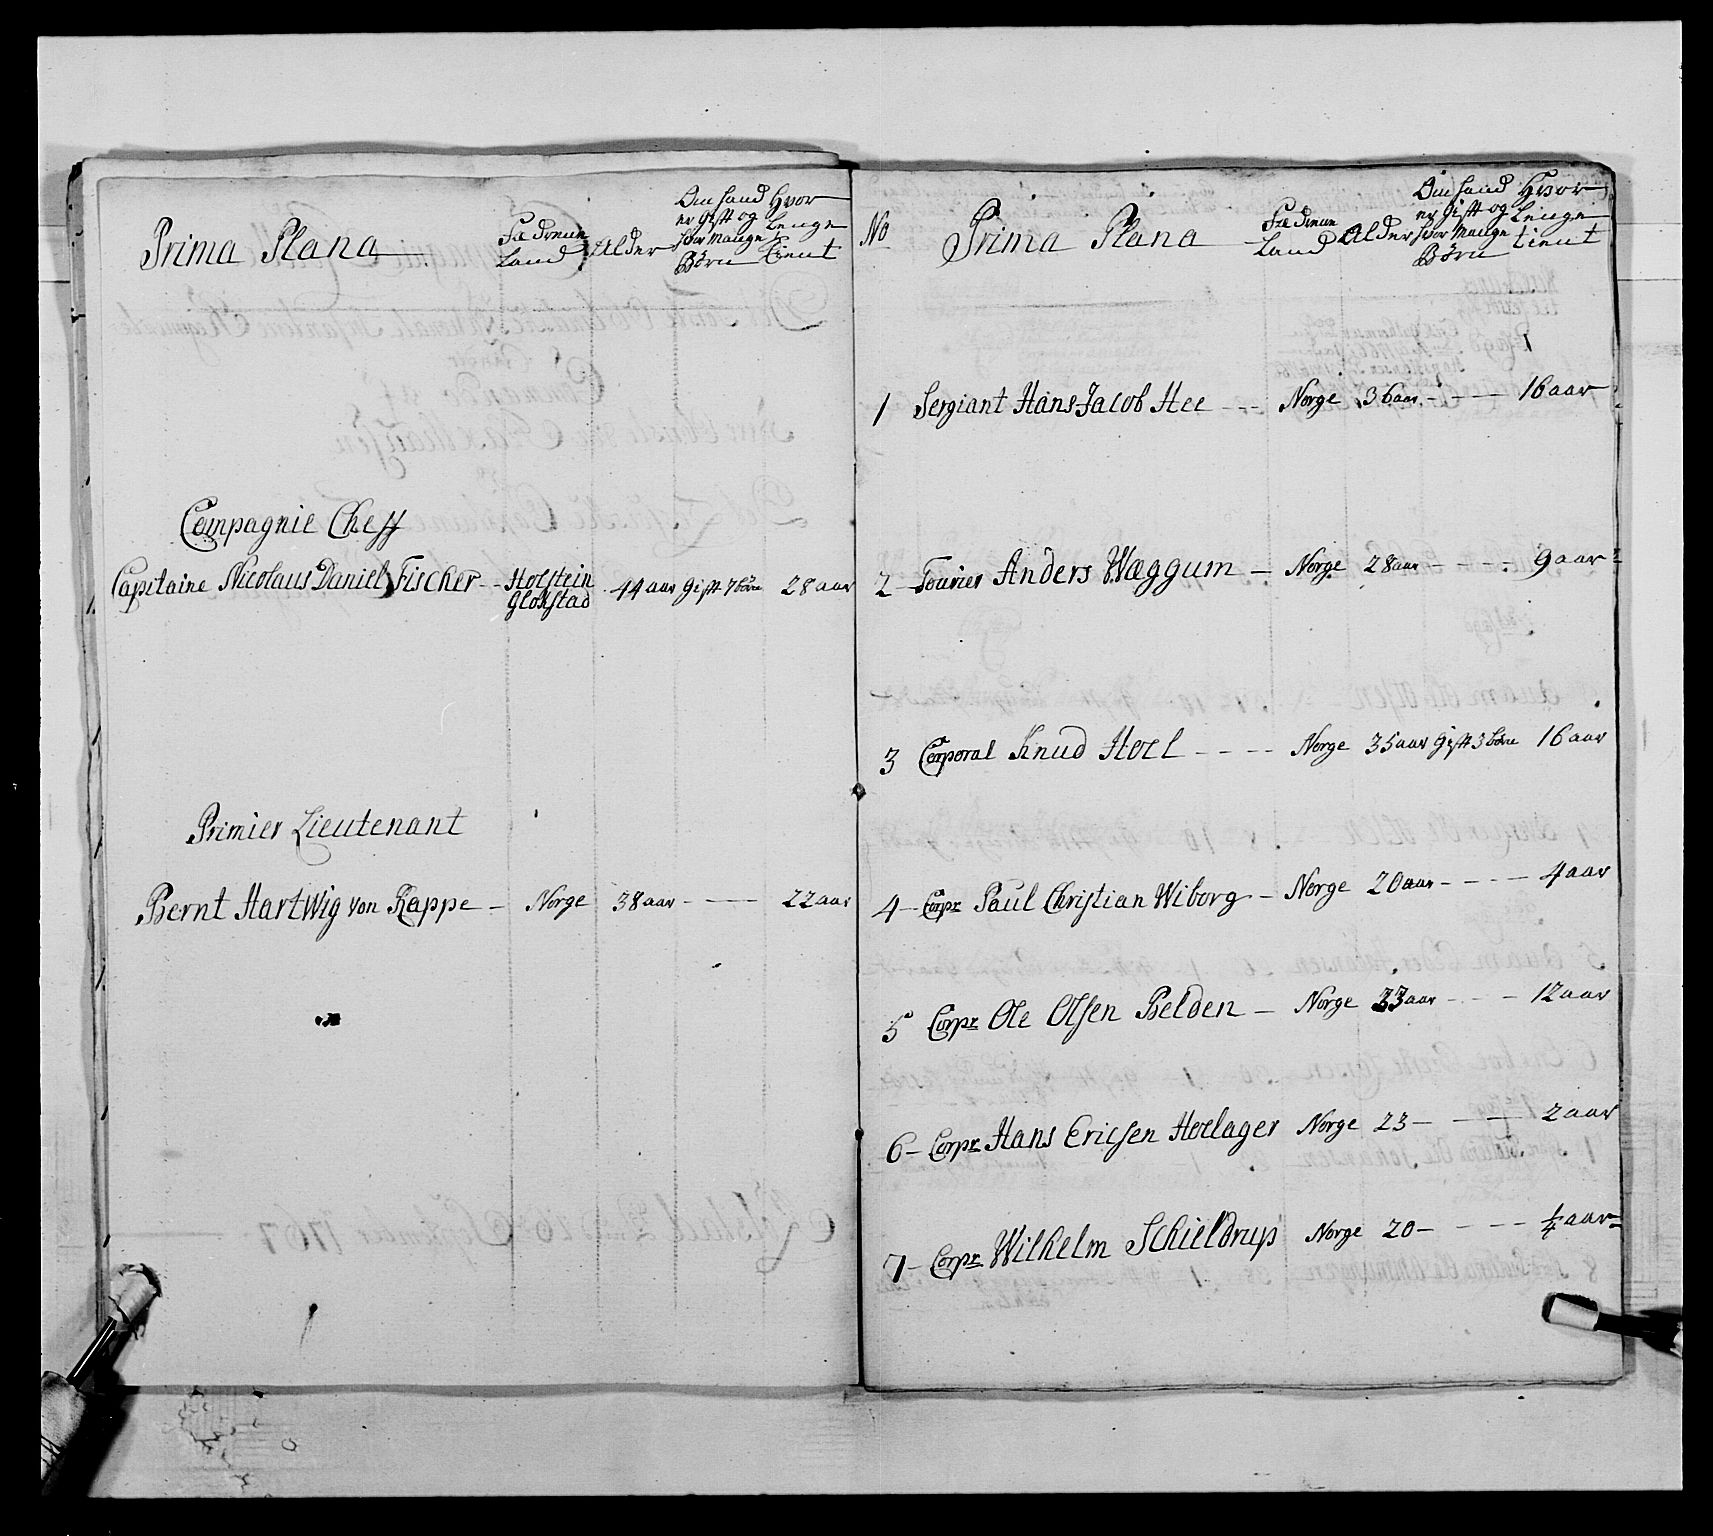 Prima Plana
Fædrene Land
Alder
Om hand er gift og hvor Mange Børn
Hvor Lenge tient
Compagnie Cheff
Capitaine Nicolaus Daniel Fischer - Holstein Glokstad 44 aar Gift 7 børn 28 aar
Primier Lieutenant
Bernt Hartwig von Kappe - Norge 38 aar - - - - 22 aar
No
Prima Plana
Fædrene Land
Alder
Om hand er gift og hvor Mange Børn
Hvor Lenge tient
1 Sergiant Hans Jacob Hee - - - Norge 36 aar - - - - 16 aar
2 Fourier Anders Wæggum - Norge 28 aar - - - - 9 aar
3 Corporal Knud Hoel - - - - Norge 35 aar Gift 3 børn 16 aar
4 - Corpr Paul Christian Wiborg - Norge 20 aar - - - - 4 aar
5 Corpr Ole Olsen Belden - Norge 33 aar - - - 12 aar
6 - Corpr Hans Ericsen Hoelager Norge 23 - - - 2 aar
7 - Corpr Wilhelm Schieldrup Norge 20 - - - - ¼ aar